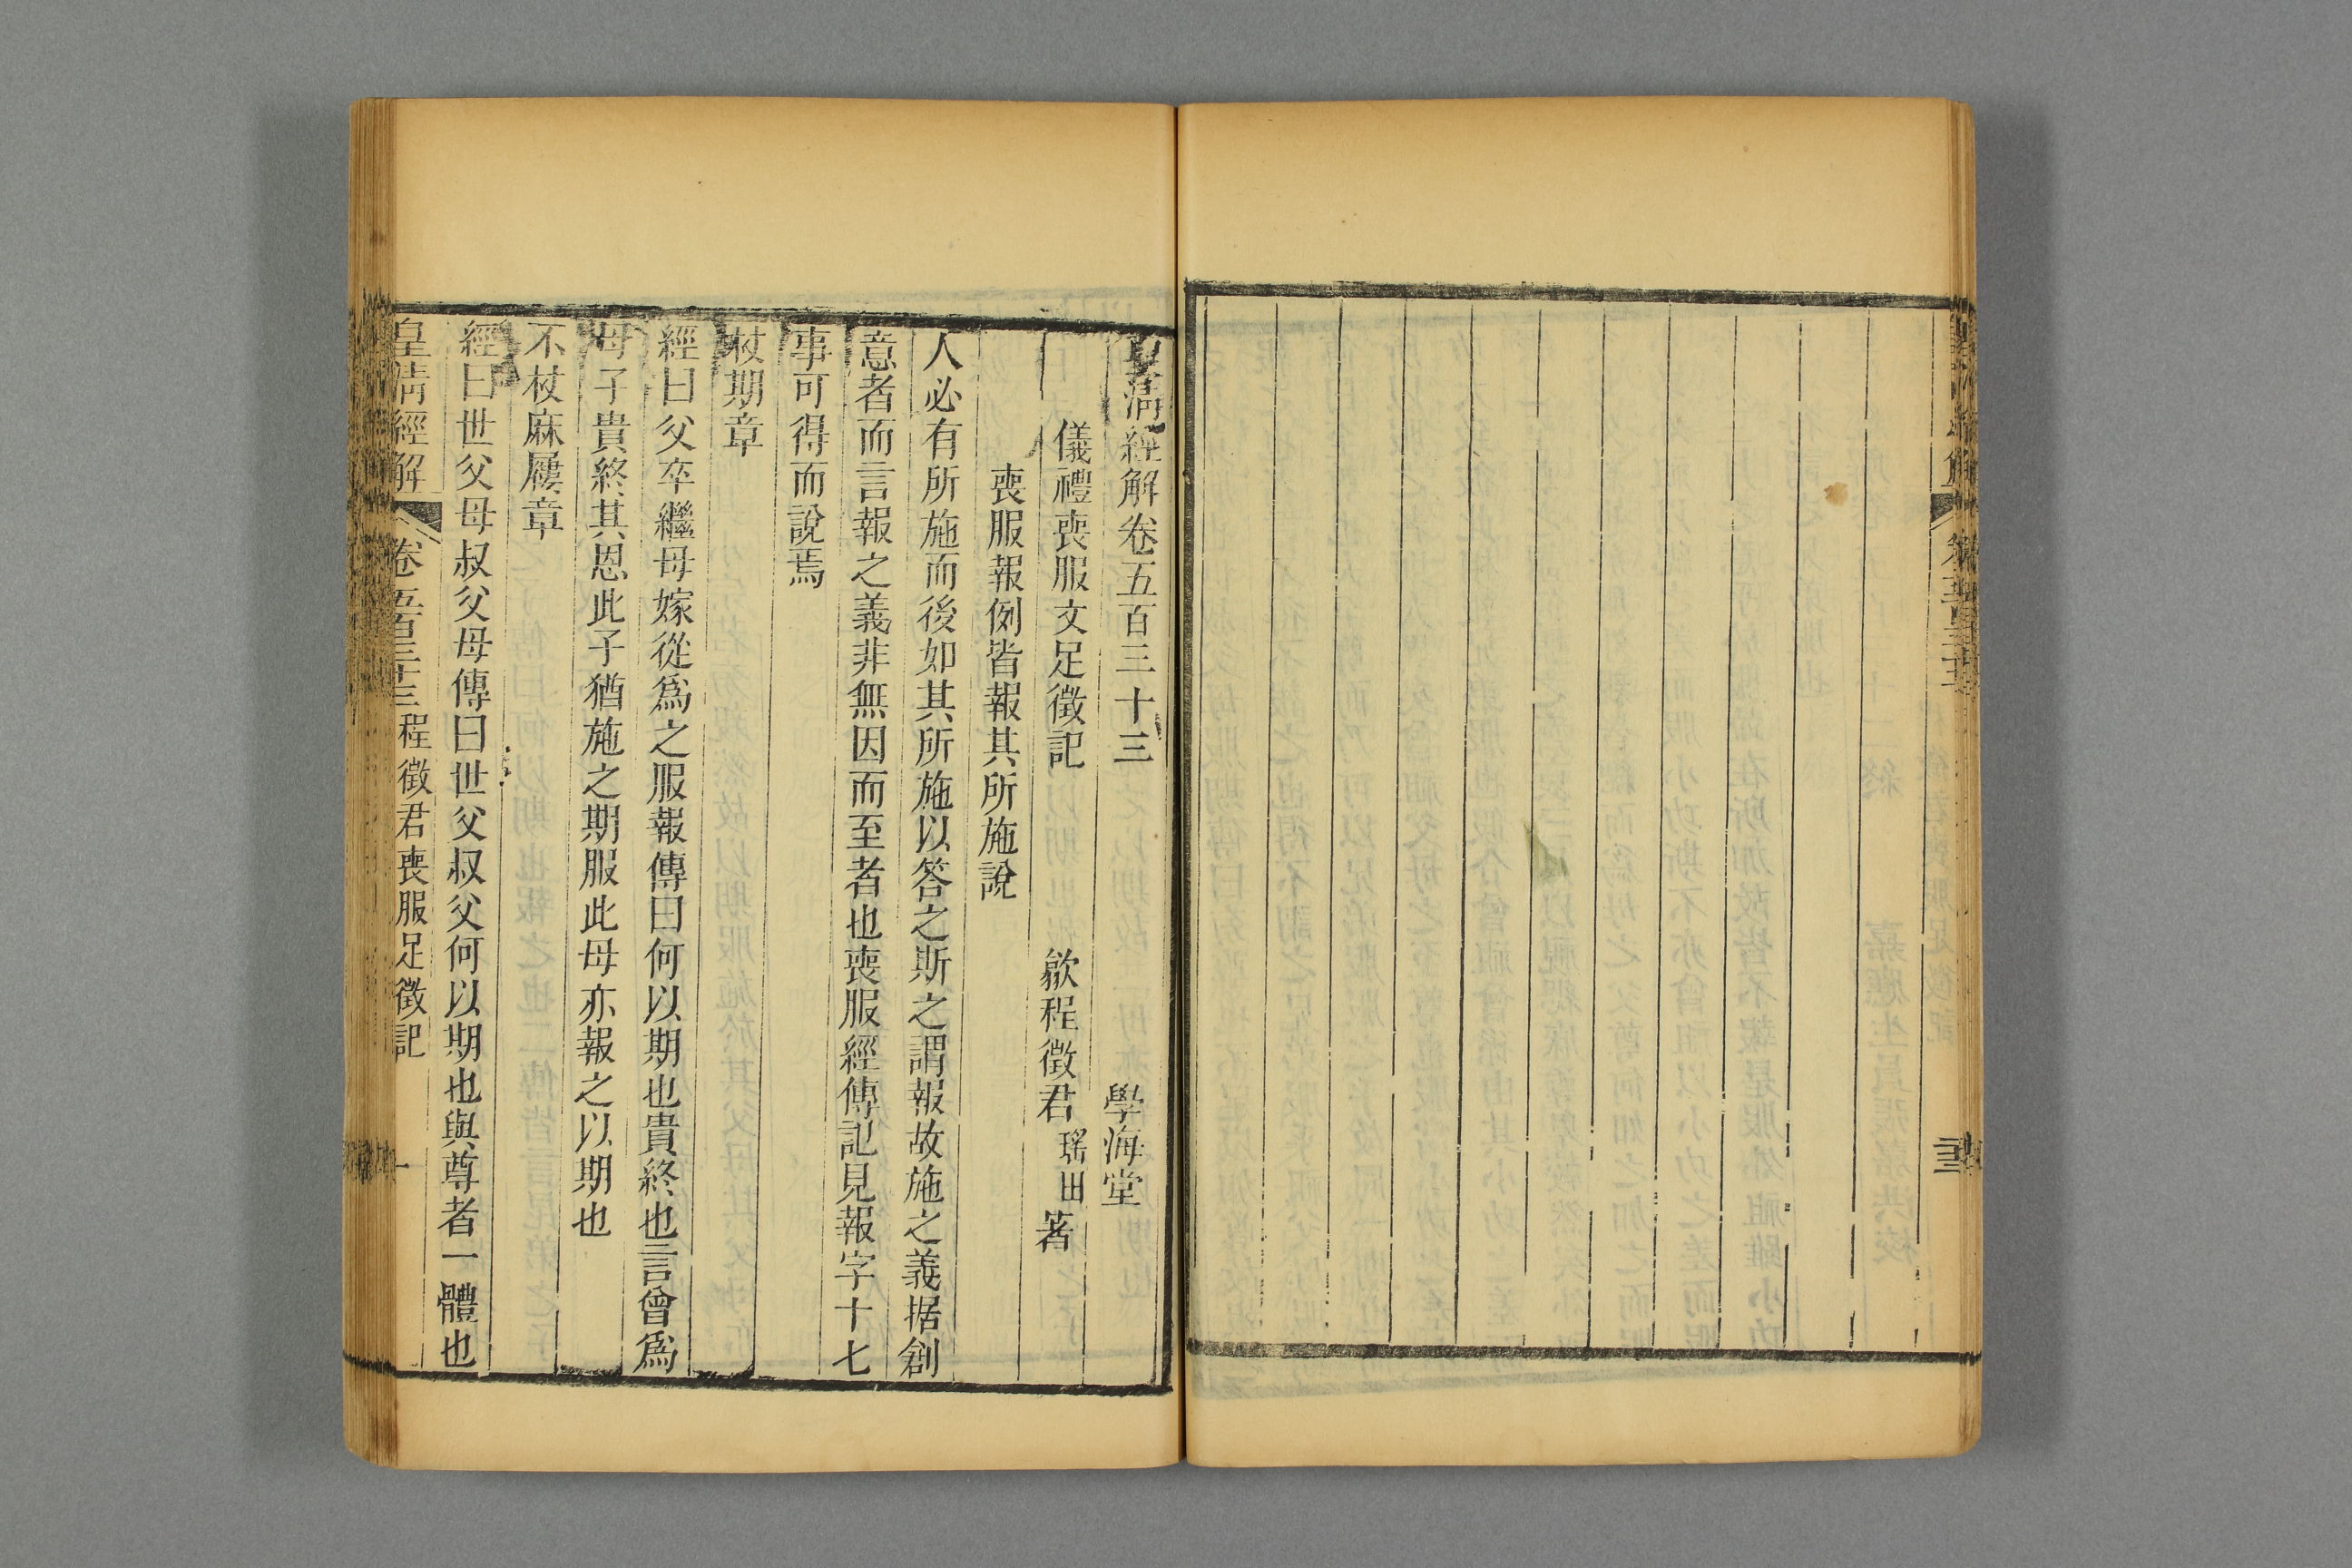 皇清經解卷五百三十三
學海堂
儀禮喪服文足徵記
歙程徵君瑤田著
喪服報例皆報其所施說
人必有所施而後如其所施以答之斯之謂報故施之義据創
意者而言報之義非無因而至者也喪服經傳記見報字十七
事可得而說焉
杖期章
經曰父卒繼母嫁從爲之服報傳曰何以期也貴終也言曾爲
母子貴終其恩此子猶施之期服此母亦報之以期也
不杖麻屨章
經曰世父母叔父母傳曰世父叔父何以期也與尊者一體也
皇清經解
卷五百三十三
程徵君喪服足徵記
一